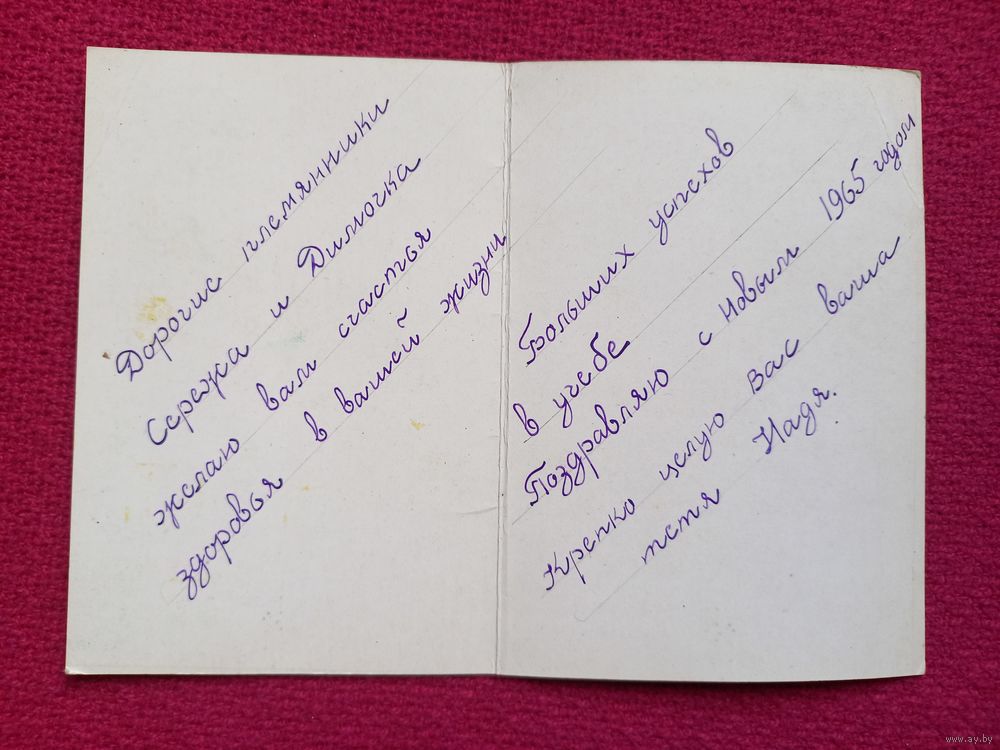 Дорогие племянники
Сережа и Димочка
желаю вам счастья
здоровья в вашей жизни
Больших успехов
в учебе
Поздравляю с Новым 1965 годом
Крепко целую вас ваша
тетя Надя.
www.ay.by